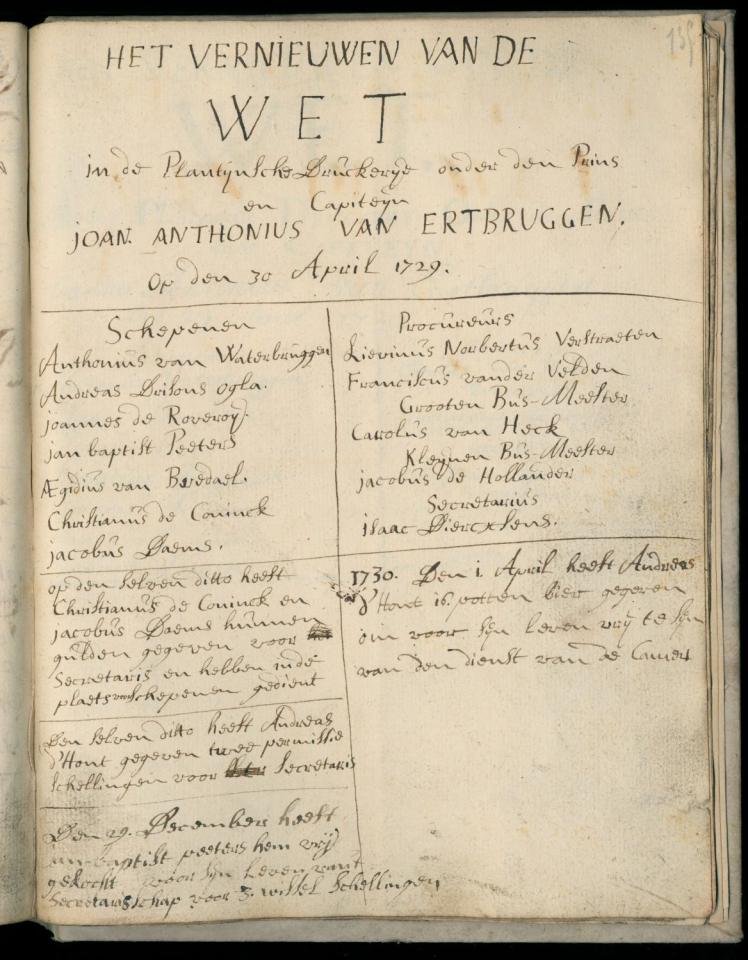 135
HET VERNIEUWEN VAN DE
WET
in de Plantynsche Druckerye onder den Prins
en Capiteyn
JOAN. ANTHONIUS VAN ERTBRUGGEN.
Op den 30 April 1729.
Schepenen
Anthonius van Waterbruggen
Andreas Drisons ogla.
joannes de Roveroy.
jan baptist Peeters
Ægidius van Bredael.
Christianus de Coninck
jacobus Daems.
op den selven ditto heeft
Christianus de Coninck en
jacobus Daems hunnen
gulden gegeven voor
Secretaris en hebben inde
plaets van Schepenen gedient
Den selven ditto heeft Andreas
d'Hont gegeven twee permissie
schellingen voor Secretaris
Den 29. December heeft
jan-baptist peeters hem vrij
gekocht voor sijn leven vant
Secretarisschap voor 3. wissel schellingen
Procureurs
Lievinus Norbertus Verstraeten
Franciscus vander Velden
Grooten Bus-Meester
Carolus van Heck
Kleynen Bus-Meester
jacobus de Hollander
Secretarius
isaac Diercxsens.
1730. Den 1. April heeft Andreas
d'Hont 16 potten bier gegeven
om voor sijn leven vrij te sijn
van den dienst van de Camer